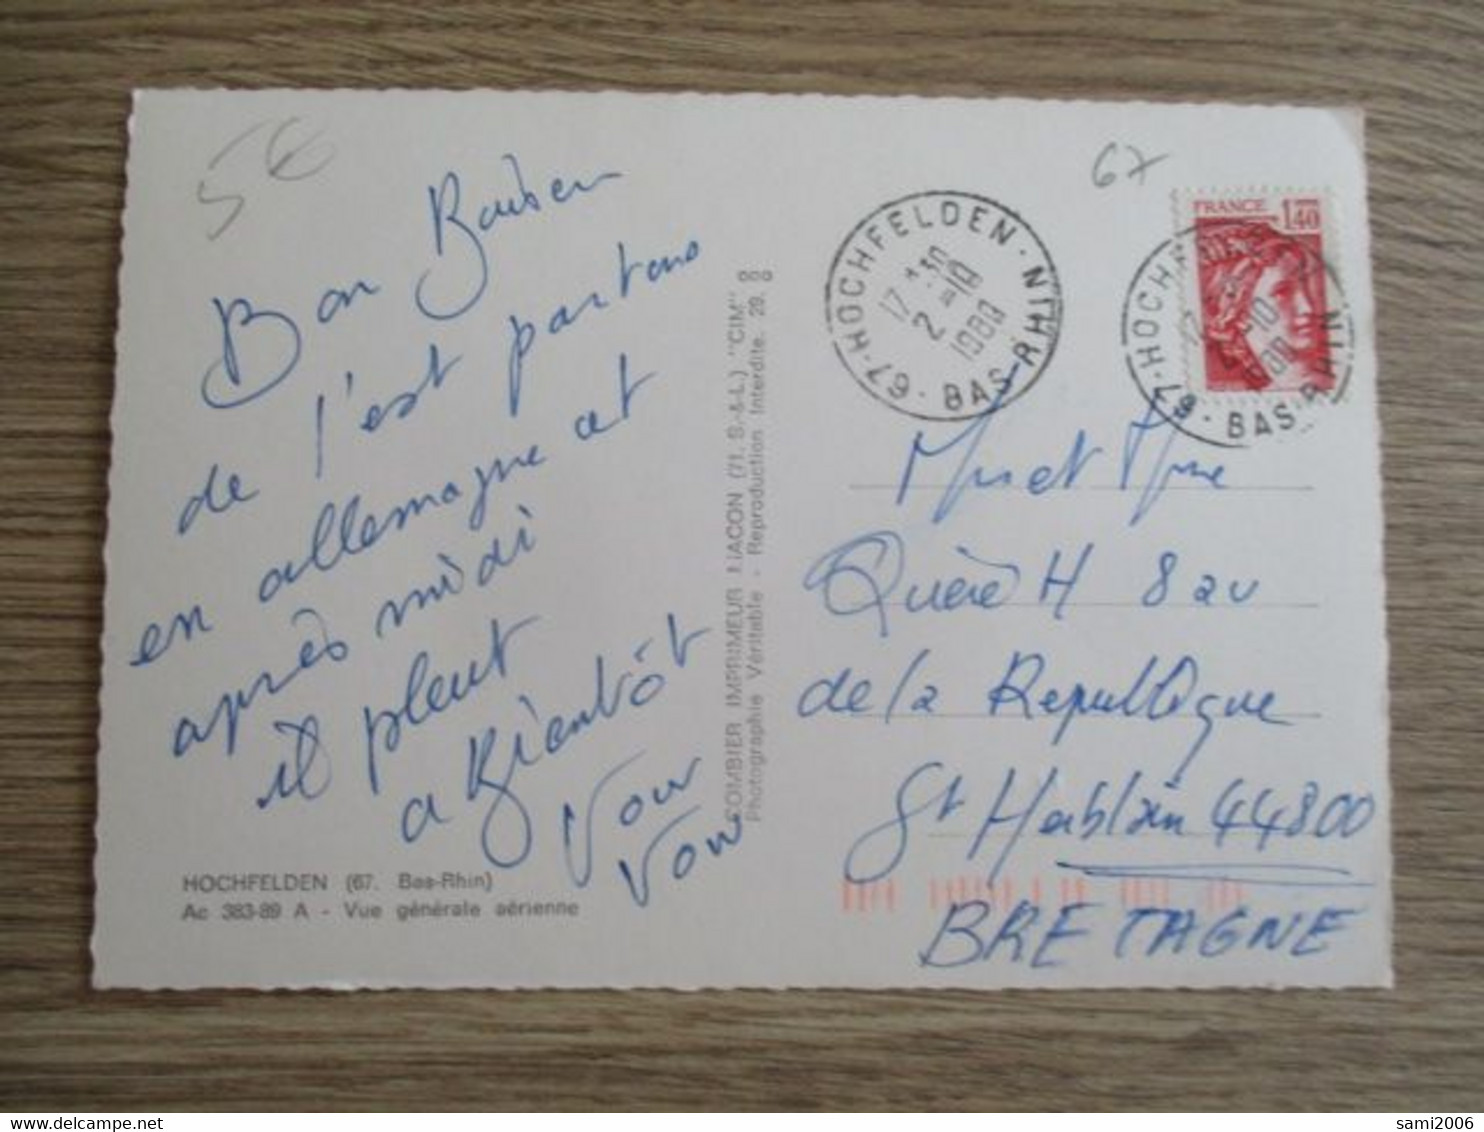 5€
67
Bon Baiser
de l'est partons
en allemagne at
après midi
il pleut
a Bientôt
HOCHFELDEN (67. Bas-Rhin)
Ac 383-89 A - Vue générale aérienne
COMBIER IMPRIMEUR MACON (71. S-&-L.) "CIM"
Photographie Véritable - Reproduction Interdite. 29.
67 · HOCHFELDEN · BAS-RHIN
17 H 30
2-10
1980
FRANCE 1,40
67 · HOCHFELDEN · BAS-RHIN
Mr et Mme
Quéré H 8 av
de la Republique
St Hablain 44800
BRETAGNE
sami2006